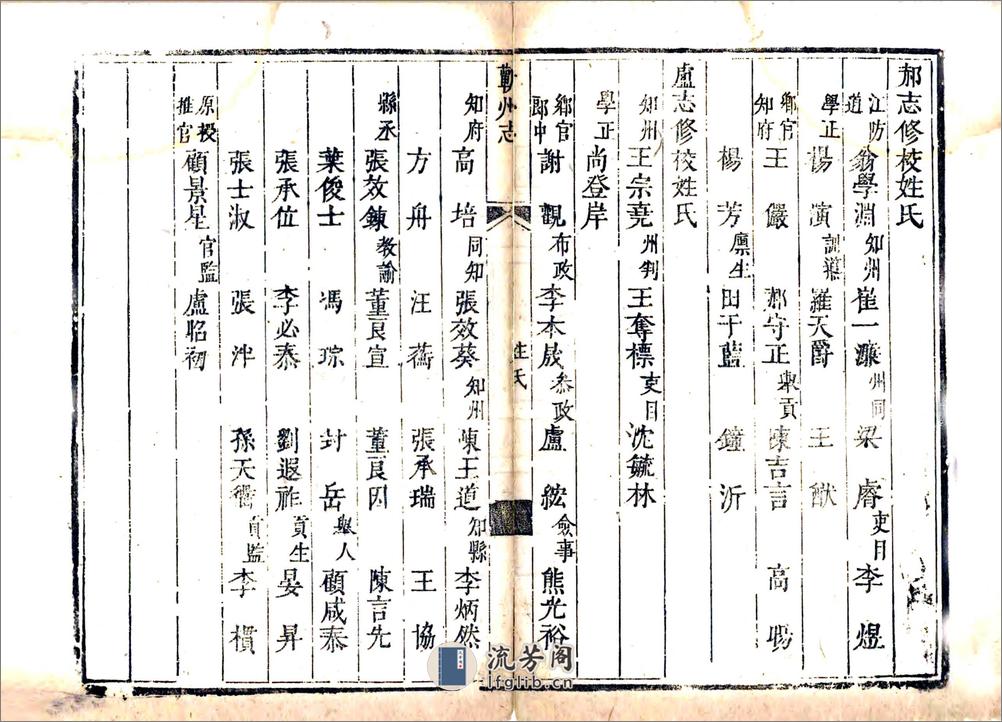 郝志修校姓氏
江防道 翁學淵 知州 崔一濂 州同 梁睿 吏目 李煜
學正 楊演 訓導 羅天爵 王猷
鄉官知府 王儼 郝守正 歲貢 陳吉言 高賜
楊芳 廩生 田于藍 鐘沂
盧志修校姓氏
知州 王宗堯 州判 王奪標 吏目 沈毓林
學正 尚登岸
鄉官郎中 謝觀 布政 李本晟 叅政 盧紘 僉事 熊光裕
蘄州志 姓氏
知府 高培 同知 張效葵 知州 東王道 知縣 李炳然
方舟 汪 張承瑞 王協
縣丞 張效鍊 教諭 董良宣 董良因 陳言先
葉俊士 馮琮 封岳 舉人 顧咸泰
張承位 李必泰 劉遐祚 貢生 晏昇
張士淑 張泮 孫天衢 貢監 李樌
原授推官 顧景星 官監 盧昭初
流芳阁
lfglib.cn